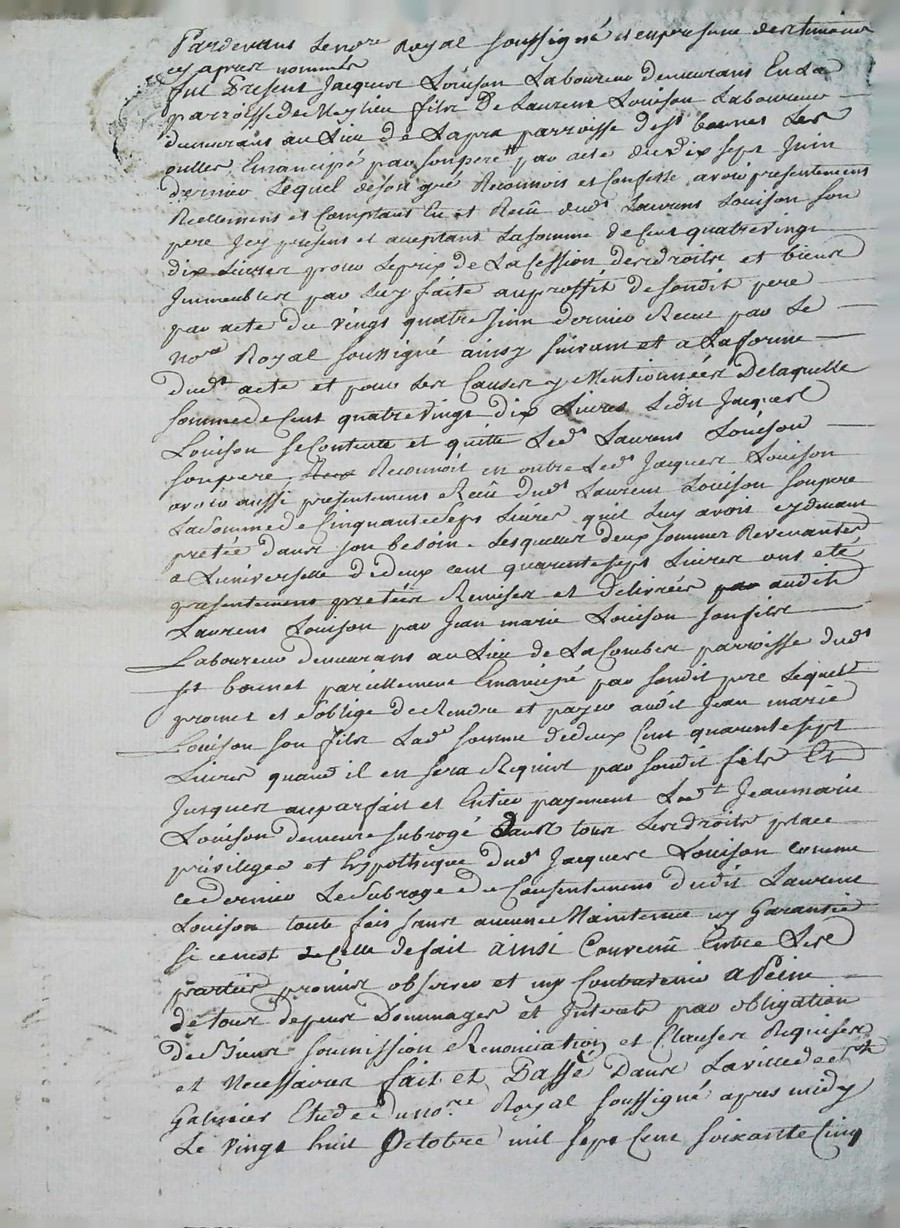 Pardevant le no.re Royal soussigné et en presence des temoins
cy apres nommés
fut Present Jacques Loüison Laboureur demeurant En La
parroisse de Meylieu fils De Laurent Loüison Laboureur
demeurant au Lieu de Lapra parroisse de st bonnet Les
oulles Emancipé par son pere par acte du dix sept Juin
dernier Lequel de son gré Reconnoit et Confesse avoir presentement
Reellement et Comptant Eu et Reçû dud.t Laurent Loüison son
pere Icy present et aceptant La somme de Cent quatre vingt
dix Livres pour le prix de La Cession des droits et biens
Immeubles par luy faite au proffit de sondit pere
par acte du vingt quatre Juin dernier Receu par Le
no.re Royal soussigné ainsy suivant et a La forme
dud.t acte et pour les Causes y Mentionnées De laquelle
somme de Cent quatre vingt dix Livres Ledit Jacques
Loüison se Contente et quitte Led.t Laurent Loüison
son pere Reconnoit en outre Led.t Jacques Loüison
avoir aussi presentement Reçû dud.t Laurent Loüison son pere
La somme de Cinquante sept Livres qu'il luy avoit cy devant
pretée dans son besoin. Lesquelles deux sommes Revenantes
a L'universelle de deux cent quarante sept Livres ont eté
presentement pretées Remises et delivrées par audit
Laurent Loüison par Jean marie Loüison son fils
Laboureur demeurant au Lieu de La Combes parroisse dud.t
st bonnet pareillement Emancipé par sondit pere Lequel
promet et s'oblige de Rendre et payer audit Jean marie
Loüison son fils Lad.e somme de deux Cent quarante sept
Livres quand il en sera Requis par sondit fils Et
Jusques au parfait et Entier payement Led.t Jean marie
Loüison demeure subrogé dans tous les droits place
privileges et hypotheque dud.t Jacques Loüison comme
ce dernier Le subroge de Consentement dudit Laurent
Loüison toute fois sans aucune Maintenue ny Garantie
si ce n'est de Celle de fait ainsi Convenü Entre Les
parties promis observer et ny Contrevenir a Peine
de tous depens Dommages et Interets par obligation
de Biens soumission Renonciation et Clauses Requises
et Necessaires fait et Passé Dans La ville de st
Galmier Etude du no.re Royal soussigné apres midy
Le vingt huit Octobre mil sept Cent soixante Cinq